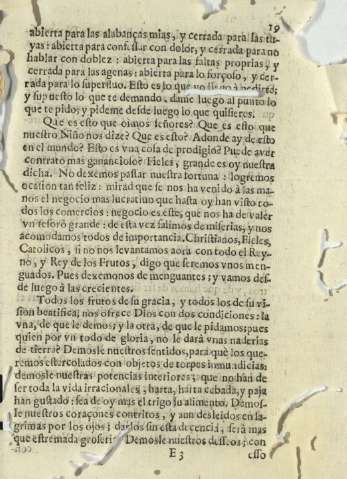 19
abierta para las alabanças mias, y cerrada para las tu-
yas: abierta para confessar con dolor, y cerrada para no
hablar con doblez: abierta para las faltas proprias, y
cerrada para las agenas: abierta para lo forçoso, y cer-
rada para lo superfluo. Esto es lo que yo llego à pedirte;
y supuesto lo que te demando, dame luego al punto lo
que te pido; y pideme desde luego lo que quisieres.
Què es esto que oimos señores? Què es esto que
nuestro Niño nos dize? Què es esto? Adonde ay de esto
en el mundo? Esto es vna cosa de prodigio? Puede aver
contrato mas ganancioso? Fieles, grande es oy nuestra
dicha. No dexemos passar nuestra fortuna: logremos
ocasion tan feliz: mirad que se nos ha venido à las ma-
nos el negocio mas lucrativo que hasta oy han visto to-
dos los comercios: negocio es este, que nos ha de valer
vn tesoro grande: de esta vez salimos de miserias, y nos
acomodamos todos de importancia. Christianos, Fieles,
Catolicos, si no nos levantamos aora con todo el Rey-
no, y Rey de los Frutos, digo que seremos vnos men-
guados. Pues dexemonos de menguantes; y vamos des-
de luego à las crecientes.
Todos los frutos de su gracia, y todos los de su vi-
sion beatifica, nos ofrece Dios con dos condiciones: la
vna, de que le demos; y la otra, de que le pidamos; pues
quien por vn todo de gloria, no le darà vnas naderias
de tierra? Demosle nuestros sentidos, para què los que-
remos estercolados con objetos de torpes inmundicias:
demosle nuestras potencias interiores; que no han de
ser toda la vida irracionales; harta, harta cebada, y paja
han gustado: sea de oy mas el trigo su alimento. Demos-
le nuestros coraçones contritos, y aun desleidos en la-
grimas por los ojos; darlos sin esta decencia, serà mas
que estremada groseria. Demosle nuestros desseos; con
E 3 esso